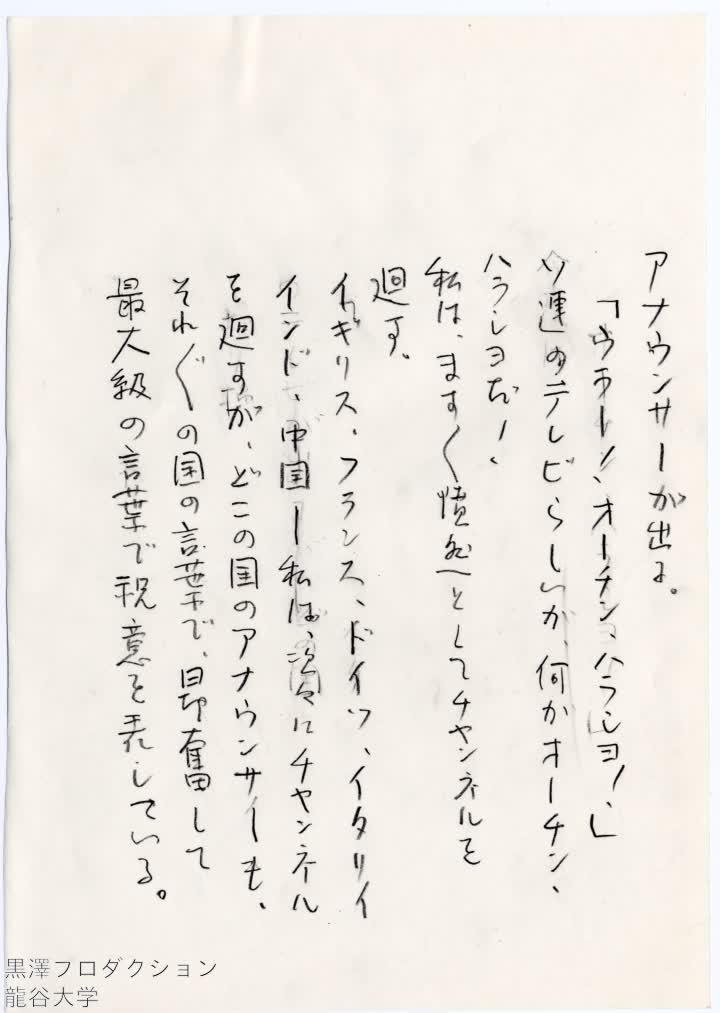 アナウンサーが出る。
「ウホー！、オーチン、ハラショ！、」
ソ連のテレビらしいが、何がオーチン、
ハラショだ！、
私は、ます〱憤然としてチャンネルを
廻す。
イギリス、フランス、ドイツ、イタリイ
インド、中国ー私は、次々にチャンネル
を廻すが、どこの国のアナウンサーも、
それ〲の国の言葉で、昂奮して
最大級の言葉で祝意を表している。
黒澤プロダクション
龍谷大学